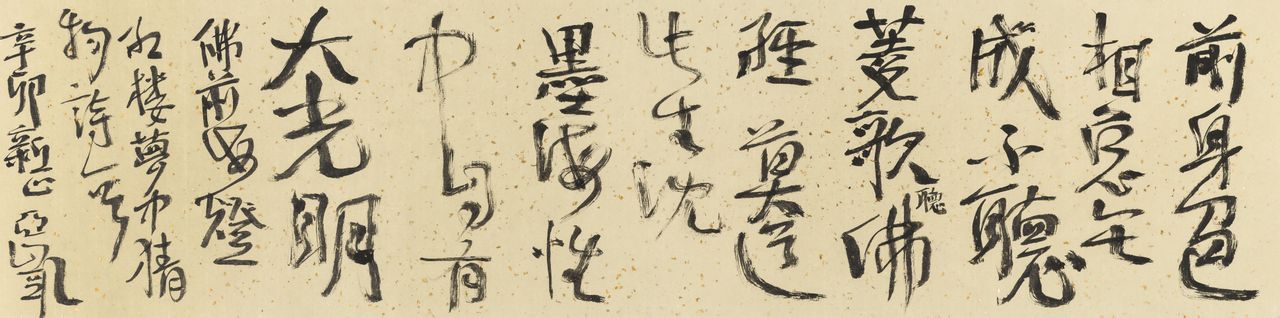 前身色
相总无
成不聽
菱歌聽佛
經莫道
此生沈
墨海性
中自有
大光明
佛前海燈
红楼夢中猜
物詩一首
辛卯新正